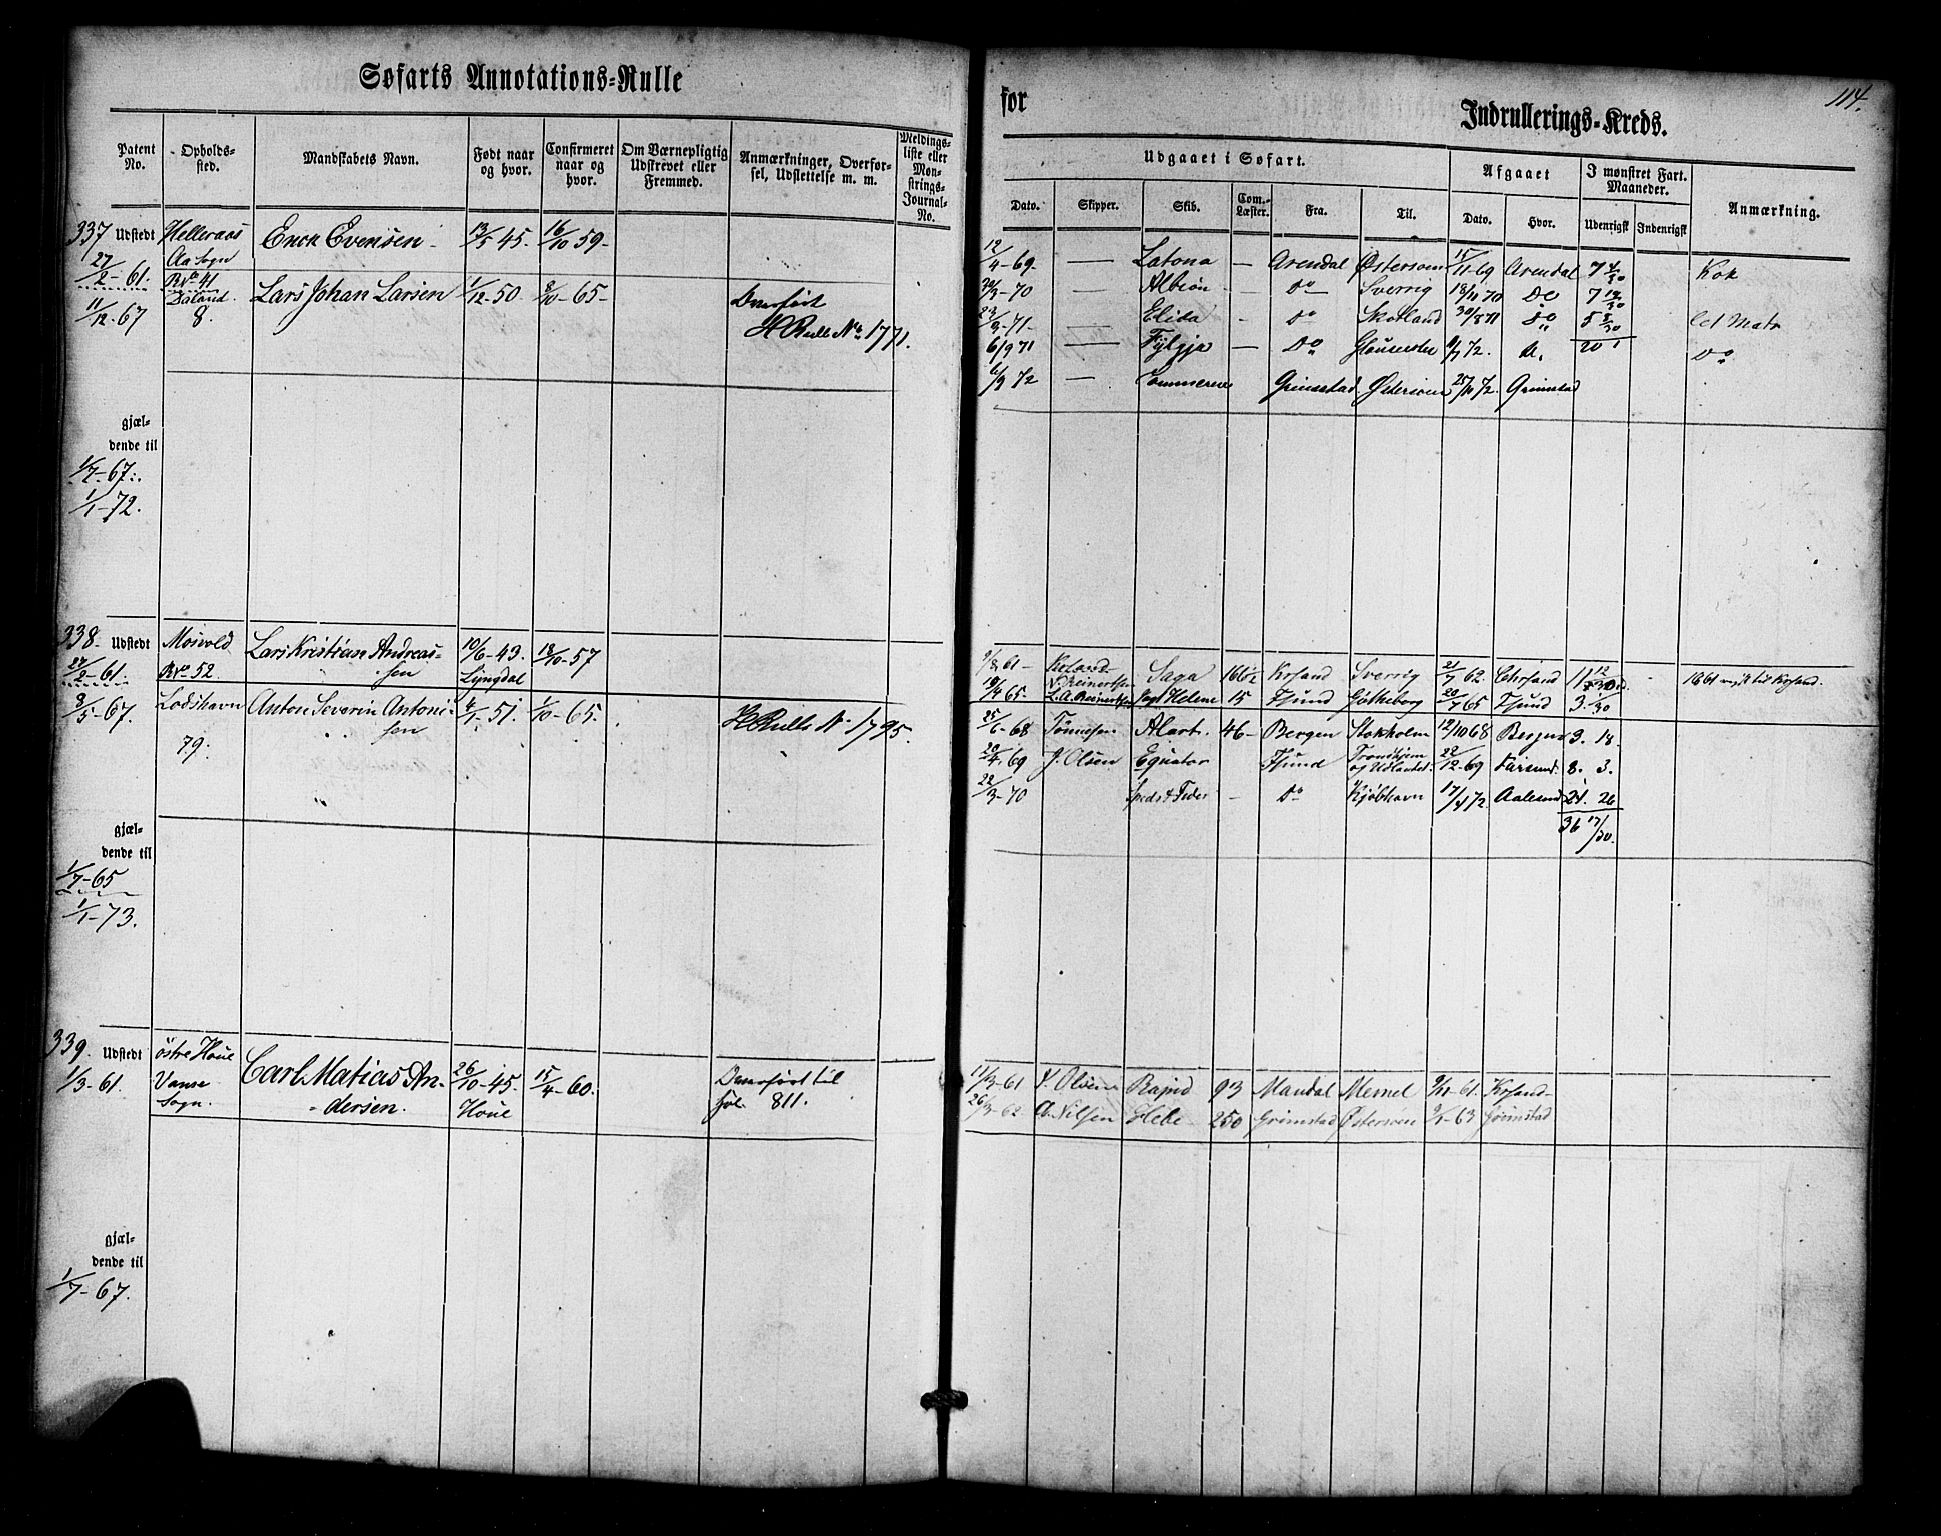 Søfarts Annotations=Rulle
Patent No.
Opholds=sted.
Mandskabets Navn.
Født naar og hvor.
Confirmeret naar og hvor.
Om Værnepligtig Udskrevet eller Fremmed.
Anmærkninger, Overfør=sel, Udslettelse m. m.
Meldings=liste eller Møn=strings=Journal=No.
337 Udstedt Helleraas Enok Evensen 13/5 45. 16/10 59.
27/2-61. Aa Sogn
No 41
11/12 67 8. Lars Johan Larsen 1/12-50. 8/10-65. Overført
H Rulle No 1771.
gjæl=
dende til
1/7-67.
1/1-72.
338. Udstedt Mosvold Lars Kristian Andreas= 10/6-43. 18/10-57
27/2-61. No 52. sen Lyngdal
8/5-67. Lodshavn Anton Severin Antoni= 6/1 51. 1/10-65.
79. sen H Rulle No 1795.
gjæl=
dende til
1/7-65
1/1-73.
339. Udstedt östre Houe Carl Matias An= 26/10-45. 15/4-60. Overført til
1/3-61. Vanse Sogn. dersen. Houe fol. 811.
gjæl=
dende til
1/7-67.
for
Indrullerings=Kreds.
114.
Udgaaet i Søfart.
Afgaaet
I mønstret Fart. Maaneder.
Anmærkning.
Dato. Skipper. Skib. Com.=Læster. Fra. Til. Dato. Hvor. Udenrigsk Indenrigsk
12/4-69. — Latona — Arendal Østersøen 15/11-69 Arendal 7 4/30 Kok
-70 — Albion — Do Sverrig 18/11 70 Do 7 19/30
-71- — Elida — Do Skotland 30/8 71 Do 5 8/30
6/9 71 — Fylgja — Do 72. Do 20 1 Do
6/9 72 — Commerce — Grimstad Østersøen 25/11 72. Grimstad
9/8 61- Saga 166½ Krsand Sverrig 21/7 62 Chrsand 11 12
N. Reinertsen
19/4 65. L. A. Reinertsen Jagt Helene 15 Fsund Gøtheborg 20/7 65 Fsund 3. 1/30
25/6-68 Tönnesen Alart. 46- Bergen Stokholm 12/10 68 Bergen 3. 18.
20/4-69 J. Olsen Equator Fsund Tronhjem og Udlandet 22/12-69 Farsund. 8. 3.
22/3-70 — Do Kjöbhavn 17/4 72. Aalesund 24. 26
36 17/30.
17/3-61 Olsen Rapid 93 Mandal Memel 61. Krsand
26/3-62 Nilsen Hebe 250 Grimstad Østersøen 9/1-63 Grimstad